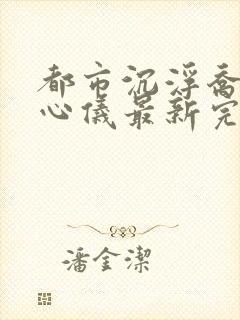 都市沉浮喬
心儀最新完
潘金潔